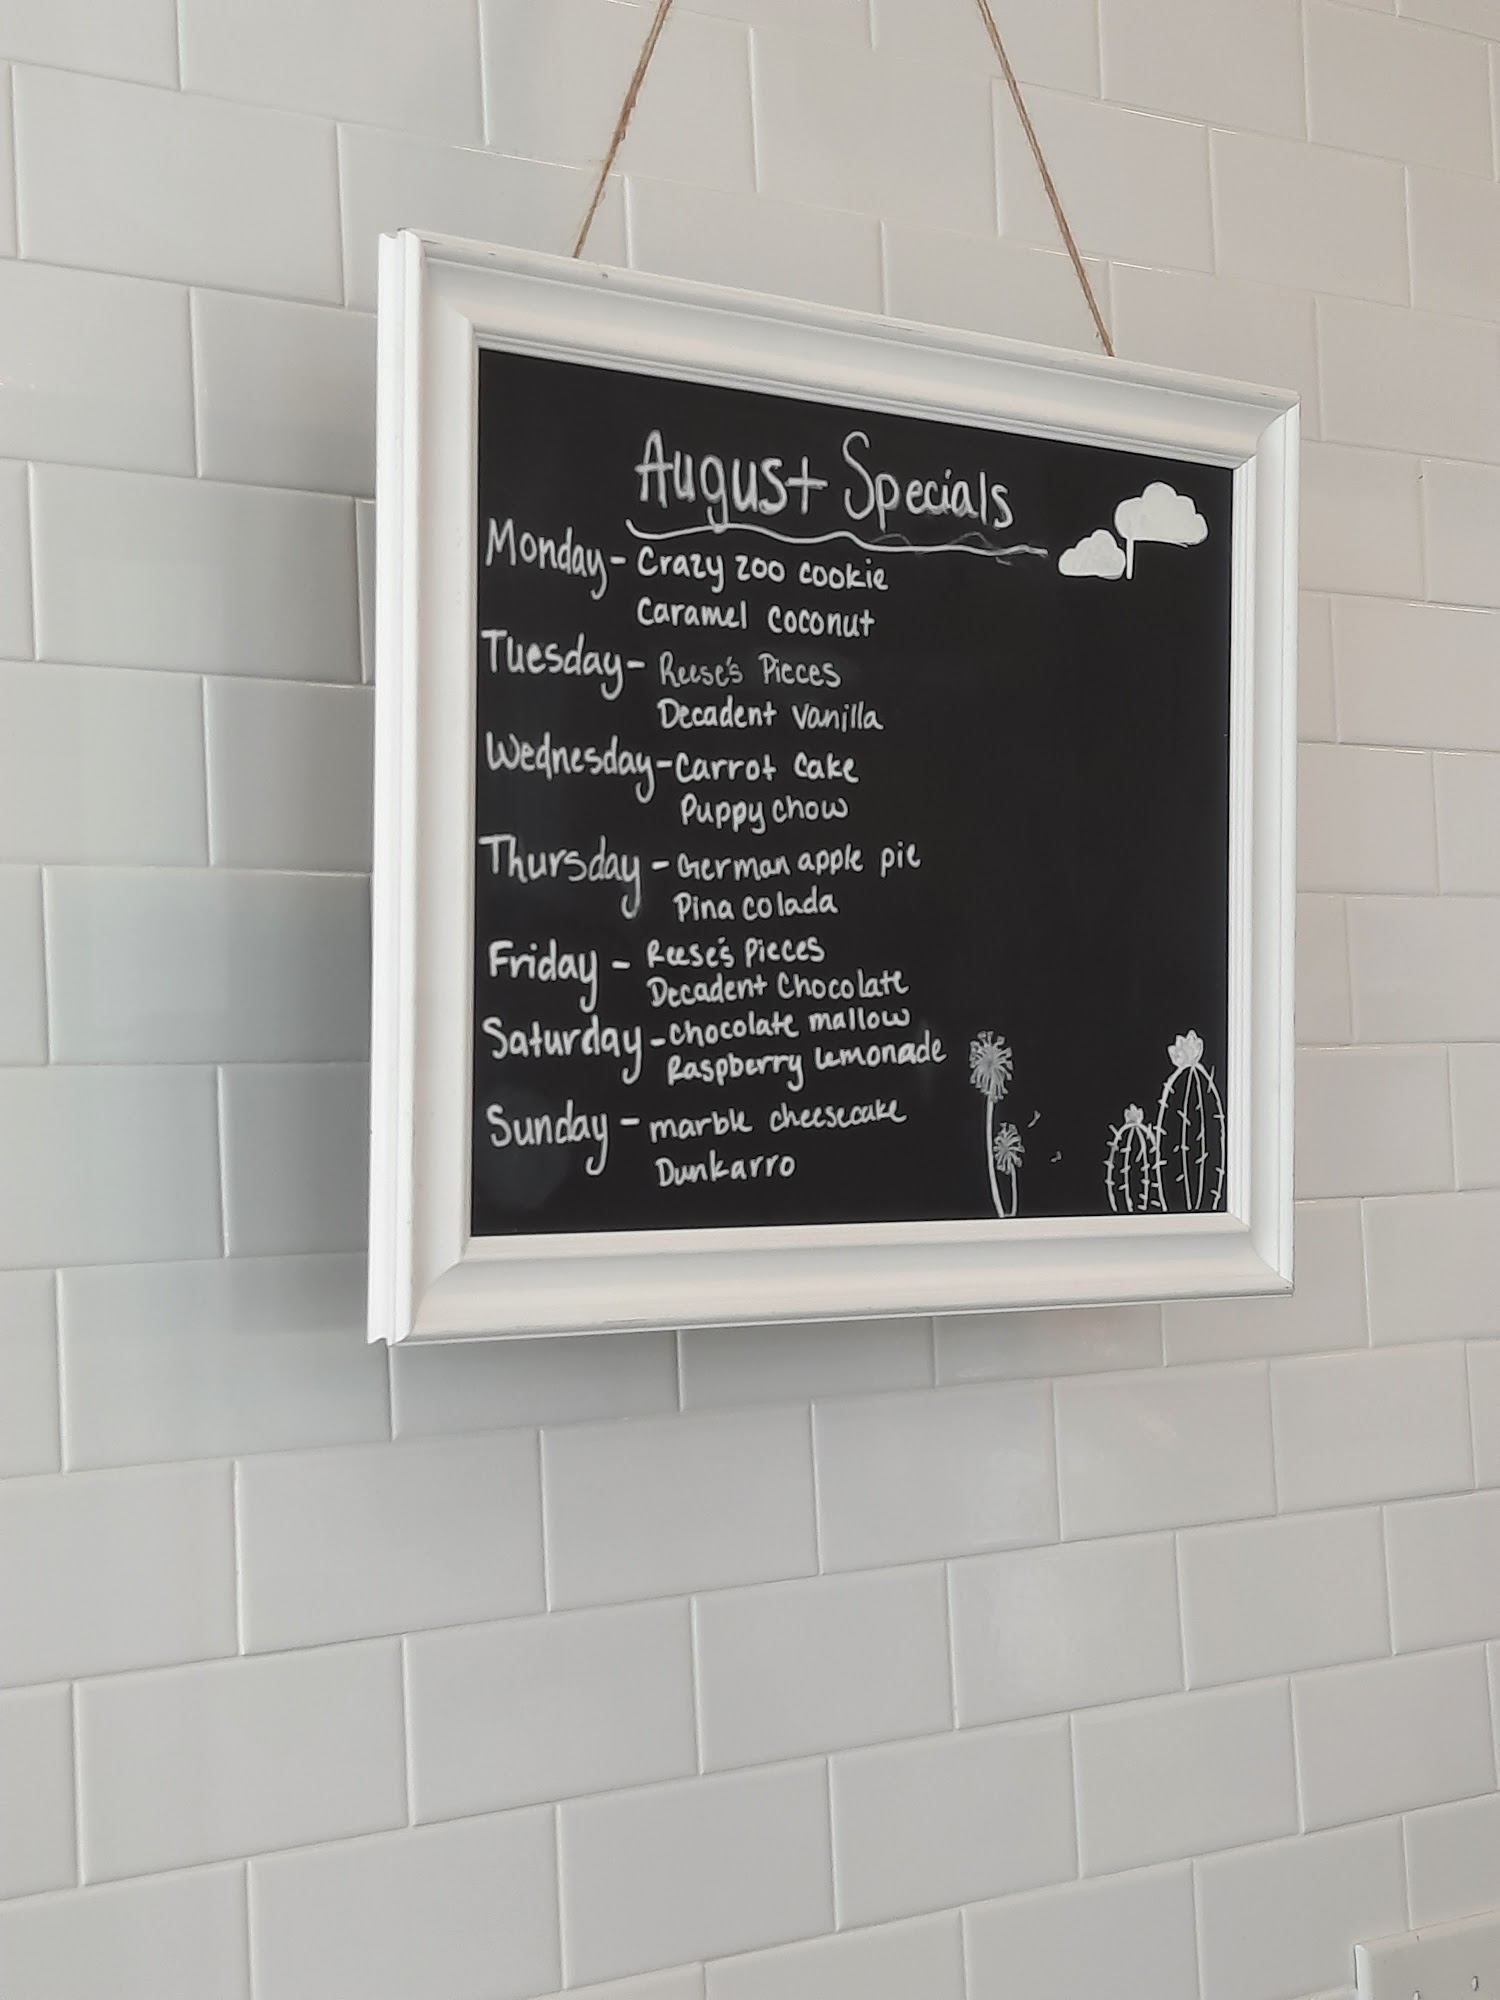 August Specials
Monday - Crazy zoo cookie
Caramel coconut
Tuesday - Reese's Pieces
Decadent Vanilla
Wednesday - Carrot Cake
Puppy chow
Thursday - German apple pie
Pina colada
Friday - Reese's Pieces
Decadent Chocolate
Saturday - Chocolate mallow
Raspberry Lemonade
Sunday - marble cheesecake
Dunkarro